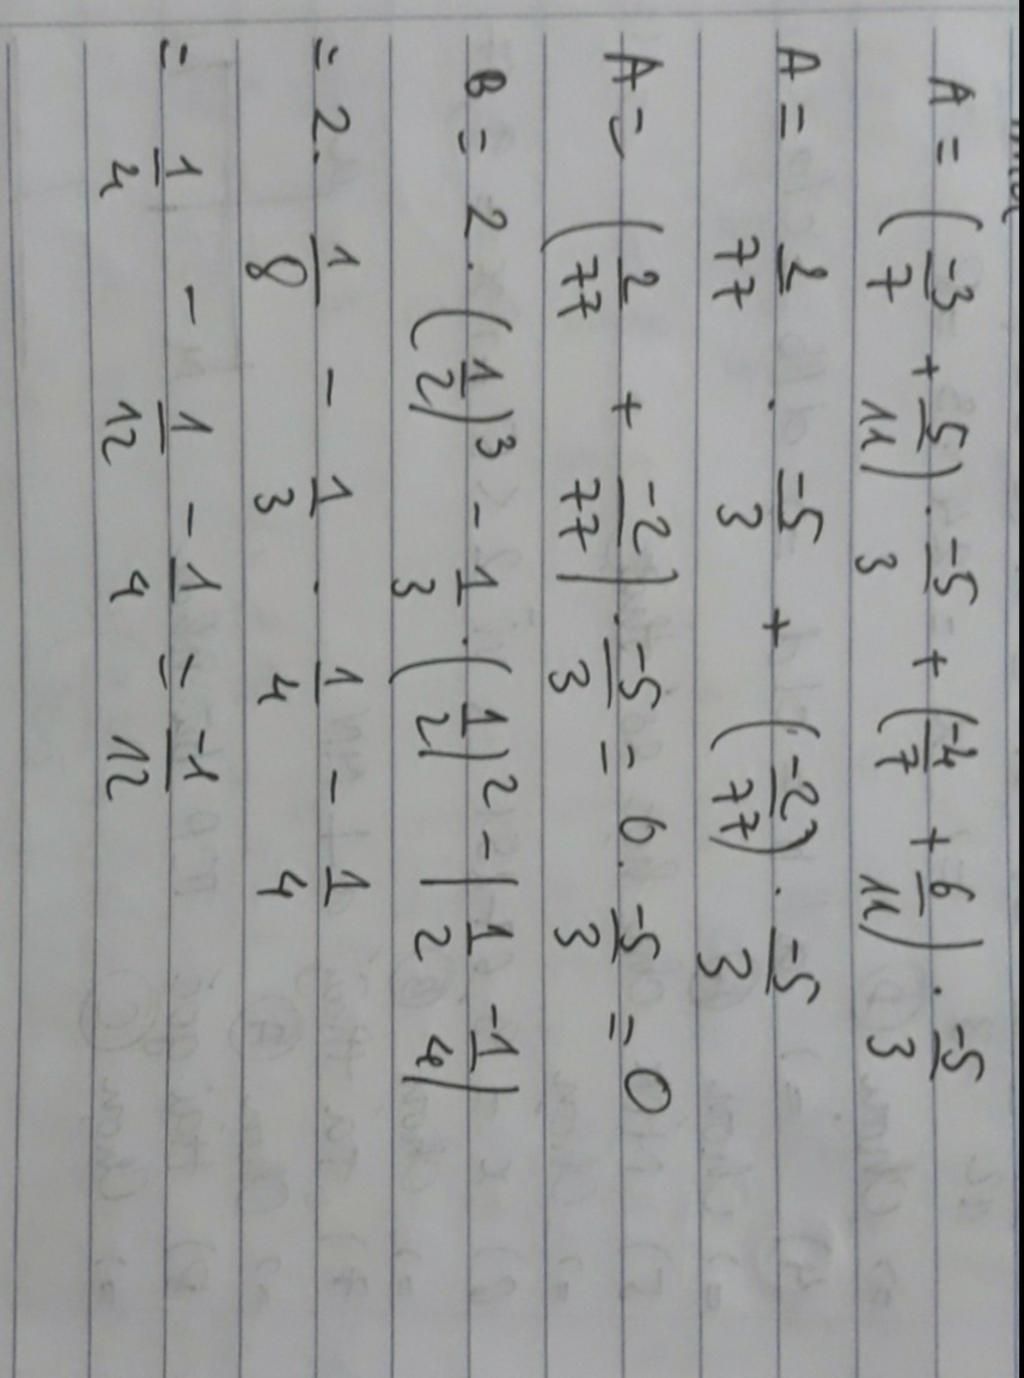 A = (-3/7 + 5/11) . -5/3 + (-4/7 + 6/11) . -5/3
A = 2/77 . -5/3 + (-2/77) . -5/3
A = (2/77 + -2/77) . -5/3 = 0 . -5/3 = 0
B = 2 . (1/2)^3 - 1/3 . (1/2)^2 - |1/2 -1/4|
= 2 . 1/8 - 1/3 . 1/4 - 1/4
= 1/4 - 1/12 - 1/4 = -1/12